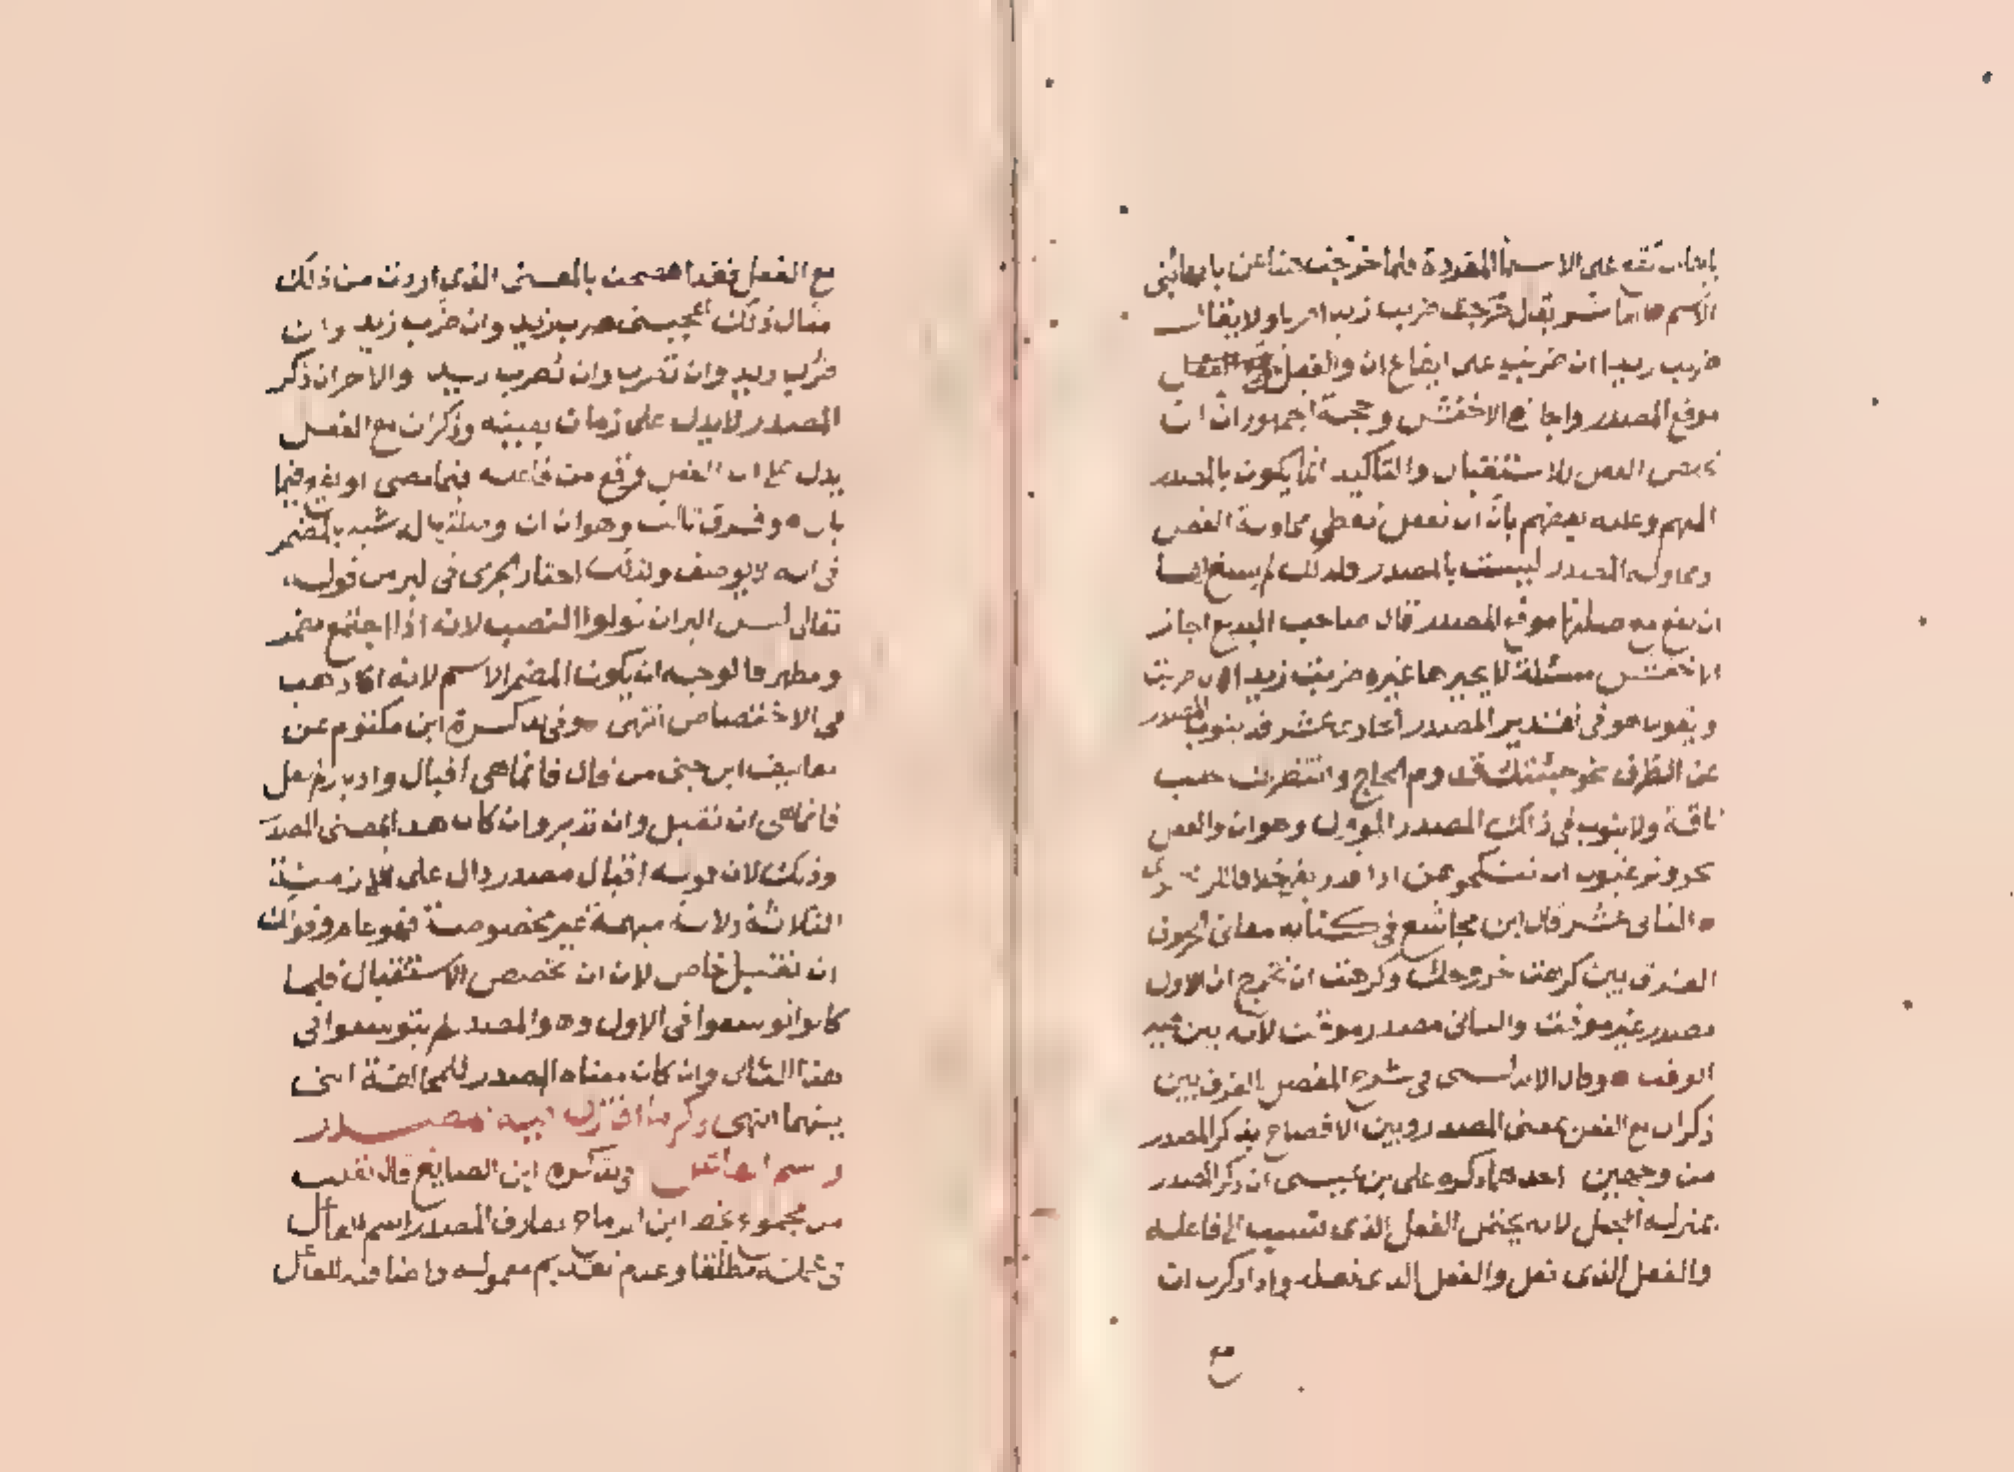 على الاسما المفردة فلما خرجت هنا عن بابها
الاسم العاشر يقال ضربت زيدا ضربا ولا يقال
ضربت زيدا ان ضربته على ايقاع ان والفعل
موقع المصدر واجازه الاخفش وحجة الجمهور ان ان
تخلص الفعل للاستقبال والتاكيد انما يكون بالمصدر
المبهم وعلله بعضهم بان ان تفعل تعطي محاولة الفعل
ومحاولة المصدر ليست بالمصدر فلذلك لم يسغ لها
ان تقع مع صلتها موقع المصدر قال صاحب البديع اجاز
الاخفش مسئلة لا يجيزها غيره ضربت زيدا ان ضربت
ويقول هو في تقدير المصدر الحادي عشر قد ينوب المصدر
عن الظرف نحو جئتك قدوم الحاج وانتظرتك حلب
ناقة ولا ينوب في ذلك المصدر المؤول وهو ان والفعل
نحو وترغبون ان تنكحوهن اذا قدر بفي خلافا للزمخشري
الثاني عشر قال ابن مجاشع في كتابه معاني الحروف
الفرق بين كرهت خروجك وكرهت ان تخرج ان الاول
مصدر غير موقت والثاني مصدر موقت لانه بين فيه
الوقت وقال الاندلسي في شرح المفصل الفرق بين
ذكر ان مع الفعل بمعنى المصدر وبين الافصاح بذكر المصدر
من وجهين احدهما ذكره علي بن عيسى ان ذكر المصدر
بمنزلة المجمل لانه يحتمل الفعل الذي تنسب الى فاعله
والفعل الذي فعل والفعل الذي تفعله واذا ذكرت ان
مع
مع الفعل فقد افصحت بالمعنى الذي اردت من ذلك
مثال ذلك اعجبني ضرب زيد وان ضرب زيد وان
ضرب زيد وان تضرب وان تضرب زيد والاخر ان ذكر
المصدر لا يدل على زمان بعينه وذكر ان مع الفعل
يدل على ان الفعل وقع من فاعله فيما مضى او يقع فيما
ياتي وفرق ثالث وهو ان ان وصلتها له شبه بالمضمر
في انه لا يوصف ولذلك اختار الجرمي في ليس من قوله
تعالى ليس البر ان تولوا النصب لانه اذا اجتمع مضمر
ومظهر فالوجه ان يكون المضمر الاسم لانه اذهب
في الاختصاص انتهى وفي تذكرة ابن مكتوم عن
تعاليق ابن جني من قال فانما هي اقبال وادبار لم يقل
فانما هي ان تقبل وان تدبر وان كان هذا بمعنى المصدر
وذلك لان قوله اقبال مصدر دال على الازمنة
الثلاثة دلالة مبهمة غير مخصوصة فهو عام وقولك
ان تقبل خاص لان ان تخصص الاستقبال فلما
كانوا توسعوا في الاول وهو المصدر لم يتوسعوا في
هذا الثاني وان كان معناه المصدر للمخالفة التي
بينهما انتهى ذكر ما افترق فيه المصدر
واسم الفاعل في تذكرة ابن الصايغ قال نقلت
من مجموع بخط ابن الرماح يفارق المصدر اسم الفاعل
في عمله مطلقا وعدم تقديم معموله واضافته للفاعل